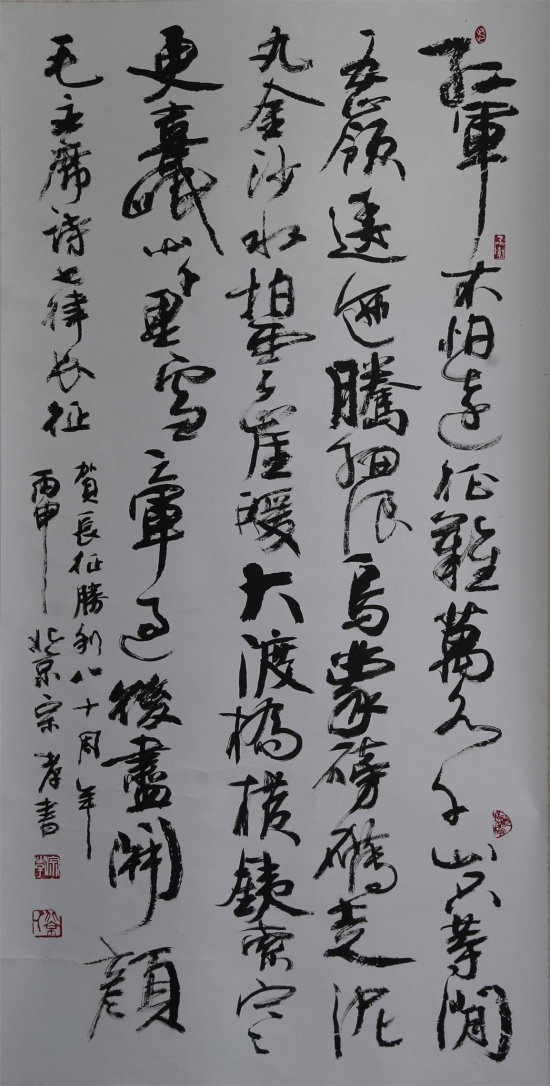 紅軍不怕遠征難萬水千山只等閒
五嶺逶迤騰細浪烏蒙磅礴走泥
丸金沙水拍雲崖暖大渡橋橫鐵索寒
更喜岷山千里雪三軍過後盡開顏
毛主席詩七律長征
賀長征勝利八十周年
丙申北京宗孝書